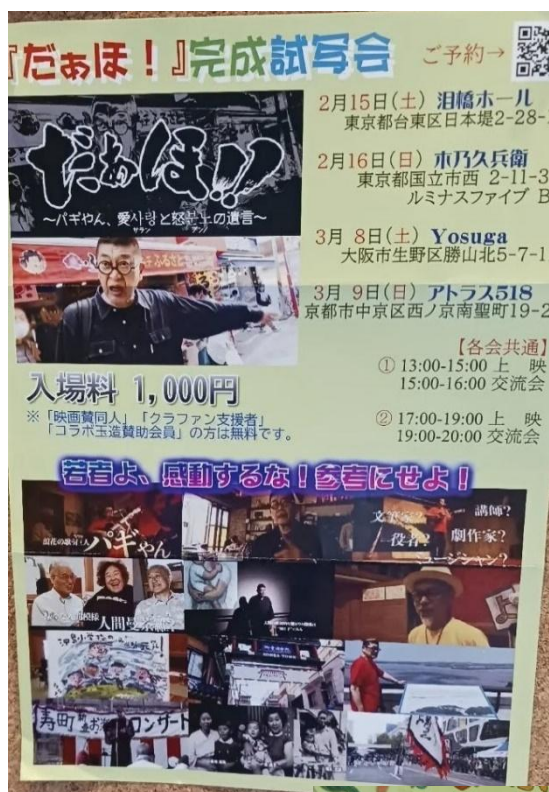 『だぁほ！』完成試写会
ご予約→
2月15日(土) 泪橋ホール
東京都台東区日本堤2-28-
2月16日(日) 木乃久兵衛
東京都国立市西 2-11-3
ルミナスファイブ B
3月 8日(土) Yosuga
大阪市生野区勝山北5-7-1
3月 9日(日) アトラス518
京都市中京区西ノ京南聖町19-2
だぁほ!!
～パギやん、愛사랑と怒분노の遺言～
サラン
【各会共通】
① 13:00-15:00 上 映
15:00-16:00 交流会
② 17:00-19:00 上 映
19:00-20:00 交流会
入場料 1,000円
※「映画賛同人」「クラファン支援者」
「コラボ玉造賛助会員」の方は無料です。
若者よ、感動するな！参考にせよ！
浪花の歌う巨人
パギやん
文筆家？
講師？
役者？
劇作家？
ミュージシャン？
人間
寿町
コンサート